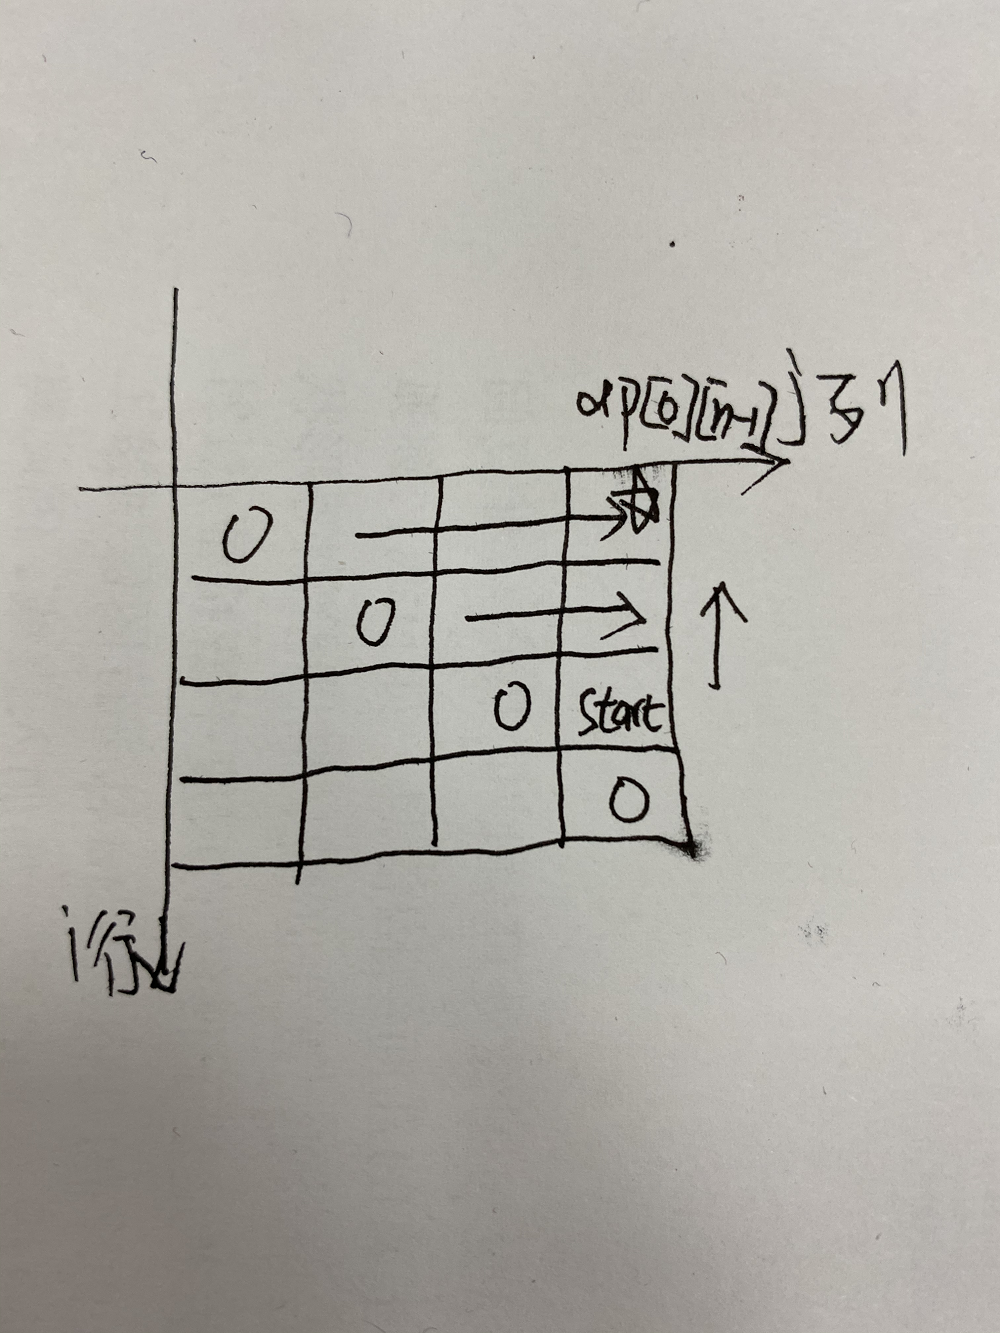 dp[0][n-1] j列
0
0
0 Start
0
i行